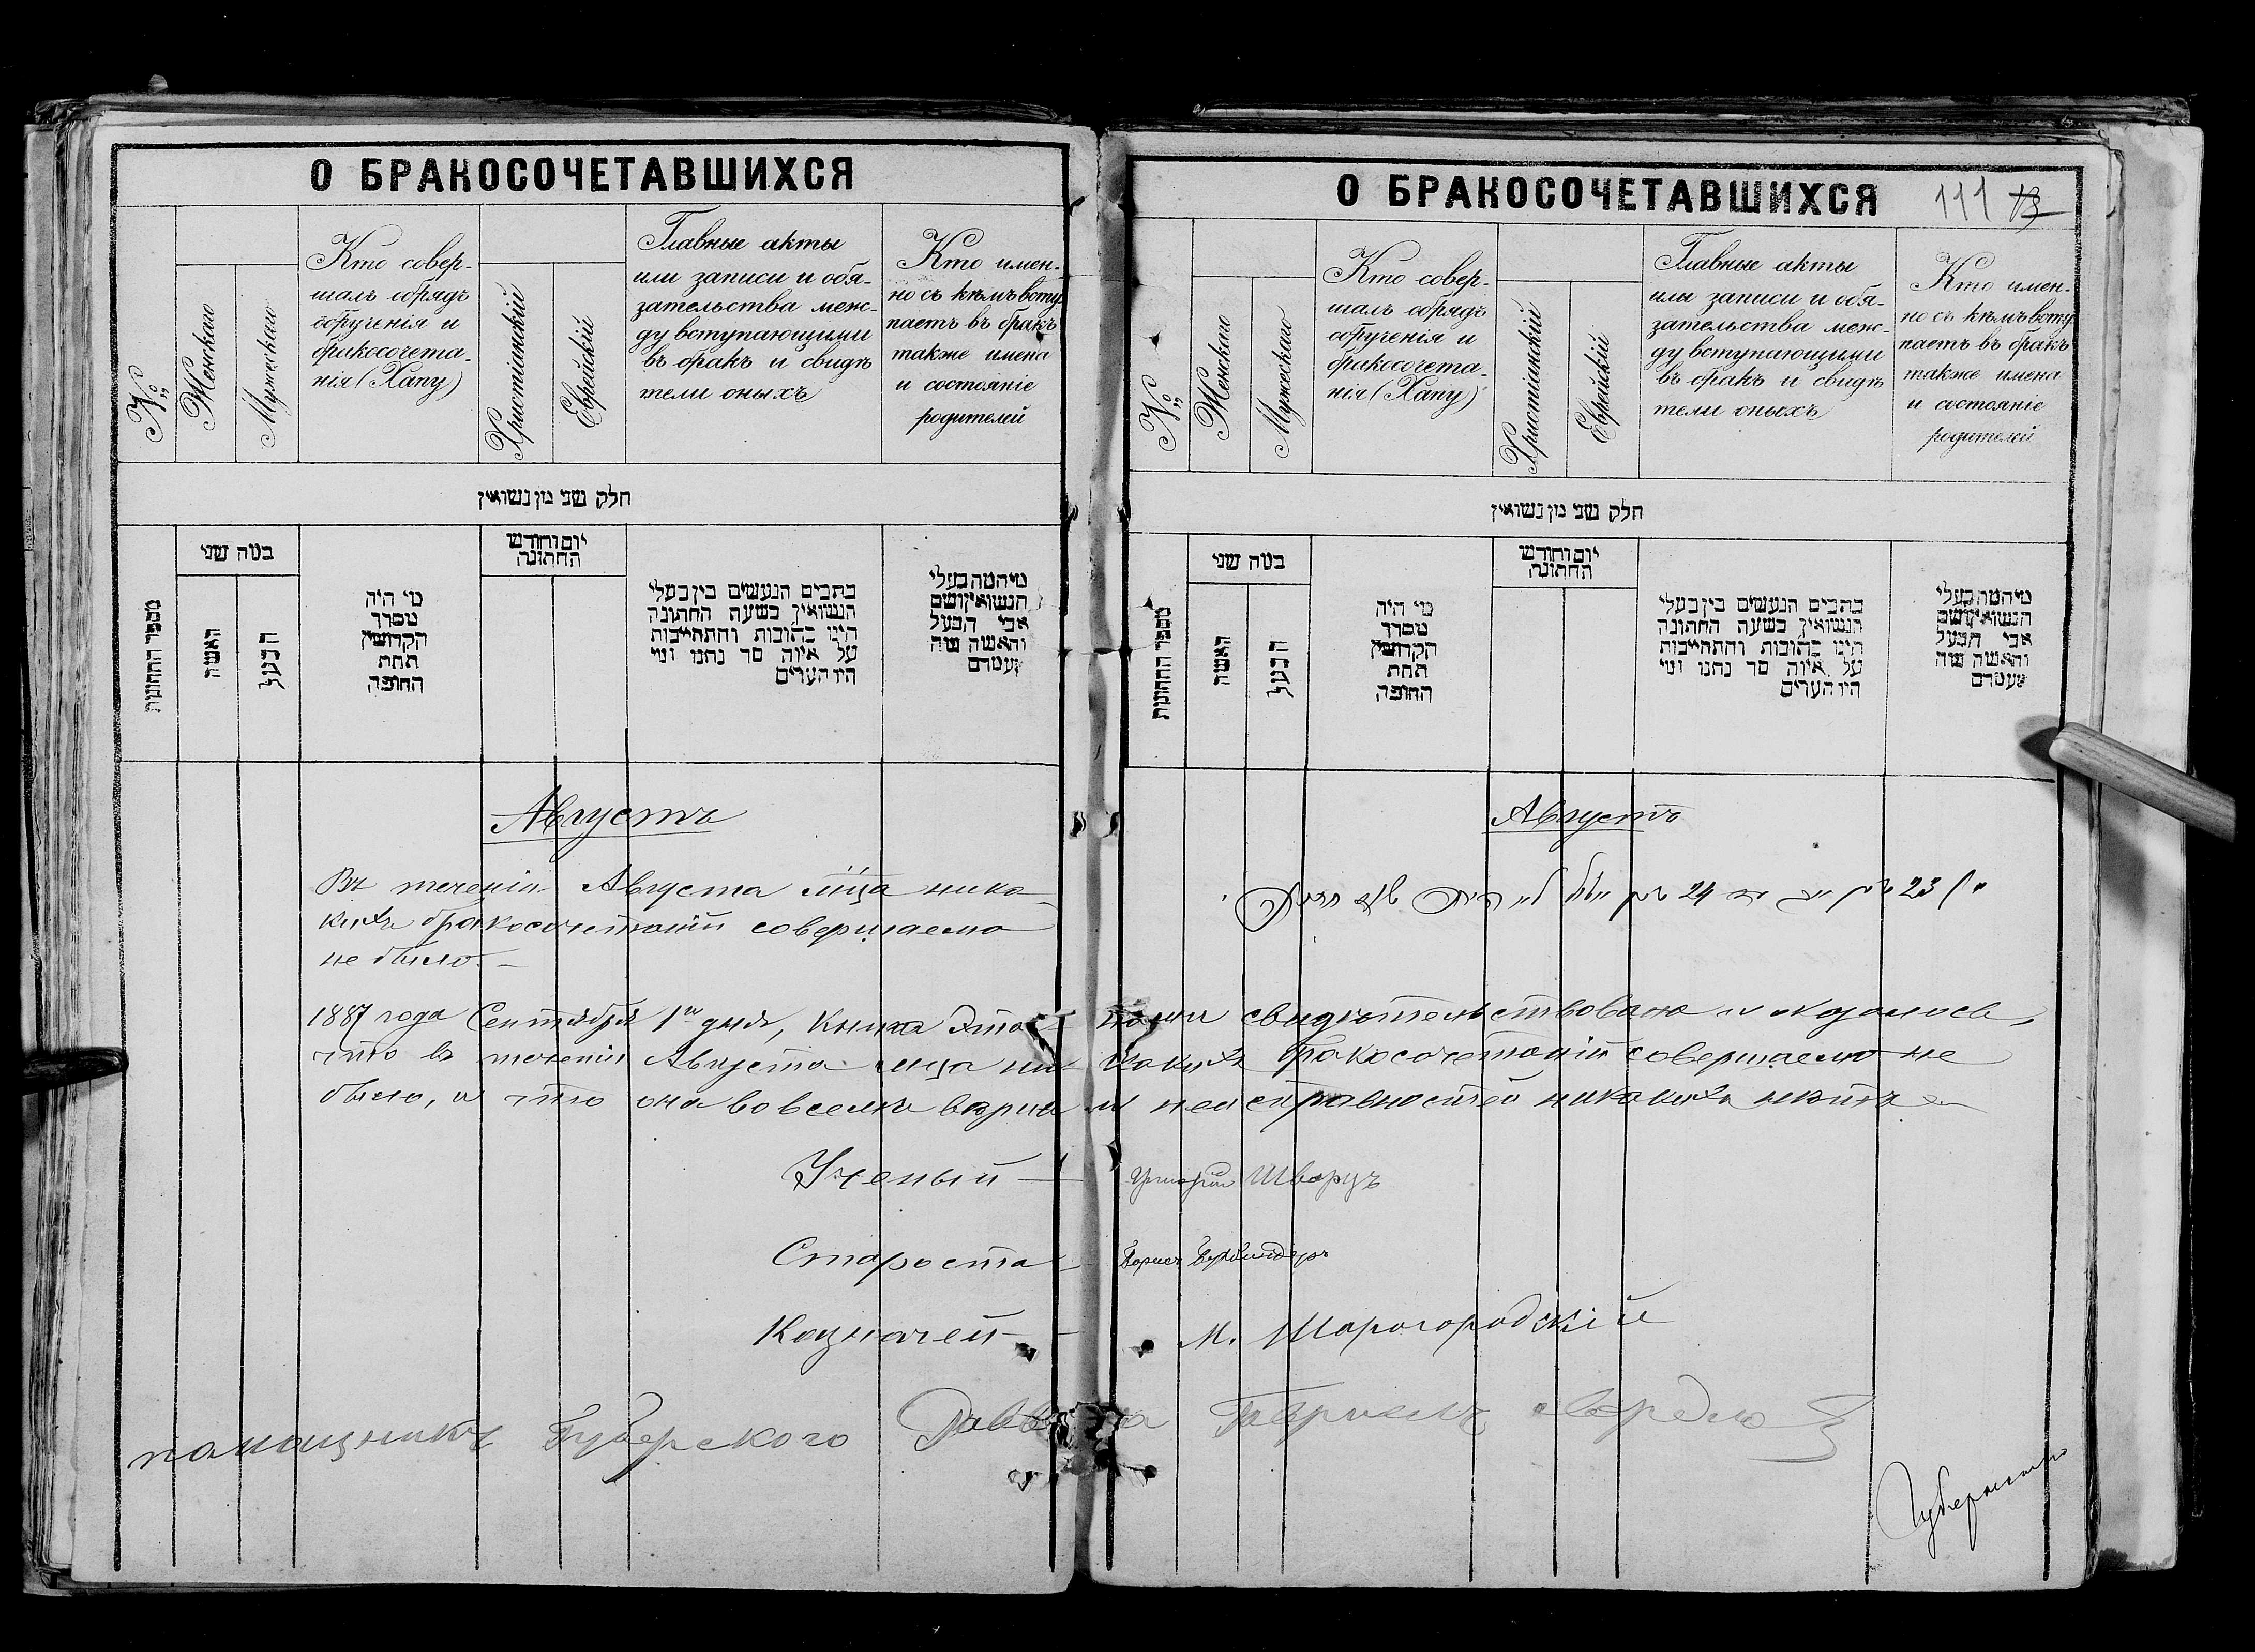 О БРАКОСОЧЕТАВШИХСЯ
№
Женскаго
Мужескаго
Кто совер-
шалъ обрядъ
обрученія и
бракосочета-
нія (Хапу)
Христіанскій
Еврейскій
Главные акты
или записи и обя-
зательства меж-
ду вступающими
въ бракъ и свидѣ
тели оныхъ
Кто имен-
но съ кѣмъ всту
паетъ въ бракъ
также имена
и состояніе
родителей
חלק שני מן נשואין
מספר החתונות
כמה שני
האשה
הבעל
מי היה
מסדר
הקדושין
תחת
החופה
יום וחודש
החתונה
כתבים הנעשים בין בעלי
הנשואין בשעת החתונה
היינו כתובות והתחייבות
על איזה סך נתנו ומי
היו העדים
מי המה בעלי
הנשואין ושם
אבי הבעל
והאשה ומה
מעמדם
Августъ
Въ теченіи Августа м̃ца ника-
кихъ бракосочетаній совершаемо
не было. —
О БРАКОСОЧЕТАВШИХСЯ
111 13
№
Женскаго
Мужескаго
Кто совер-
шалъ обрядъ
обрученія и
бракосочета-
нія (Хапу)
Христіанскій
Еврейскій
Главные акты
или записи и обя-
зательства меж-
ду вступающими
въ бракъ и свидѣ
тели оныхъ
Кто имен-
но съ кѣмъ всту
паетъ въ бракъ
также имена
и состояніе
родителей
חלק שני מן נשואין
מספר החתונות
כמה שני
האשה
הבעל
מי היה
מסדר
הקדושין
תחת
החופה
יום וחודש
החתונה
כתבים הנעשים בין בעלי
הנשואין בשעת החתונה
היינו כתובות והתחייבות
על איזה סך נתנו ומי
היו העדים
מי המה בעלי
הנשואין ושם
אבי הבעל
והאשה ומה
מעמדם
Августъ
23 24
1887 года Сентября 1го дня, Книга эта нами свидѣтельствована и оказалось,
что въ теченіи Августа м̃ца никакихъ бракосочетаній совершаемо не
было, и что она во всемъ вѣрна и неисправностей никакихъ нѣтъ —
Ученый — Григорій Шварцъ
Староста — Борисъ Букбиндеръ
Казначей — М. Шарогородскій
помощникъ Губерского Раввина Гавріилъ